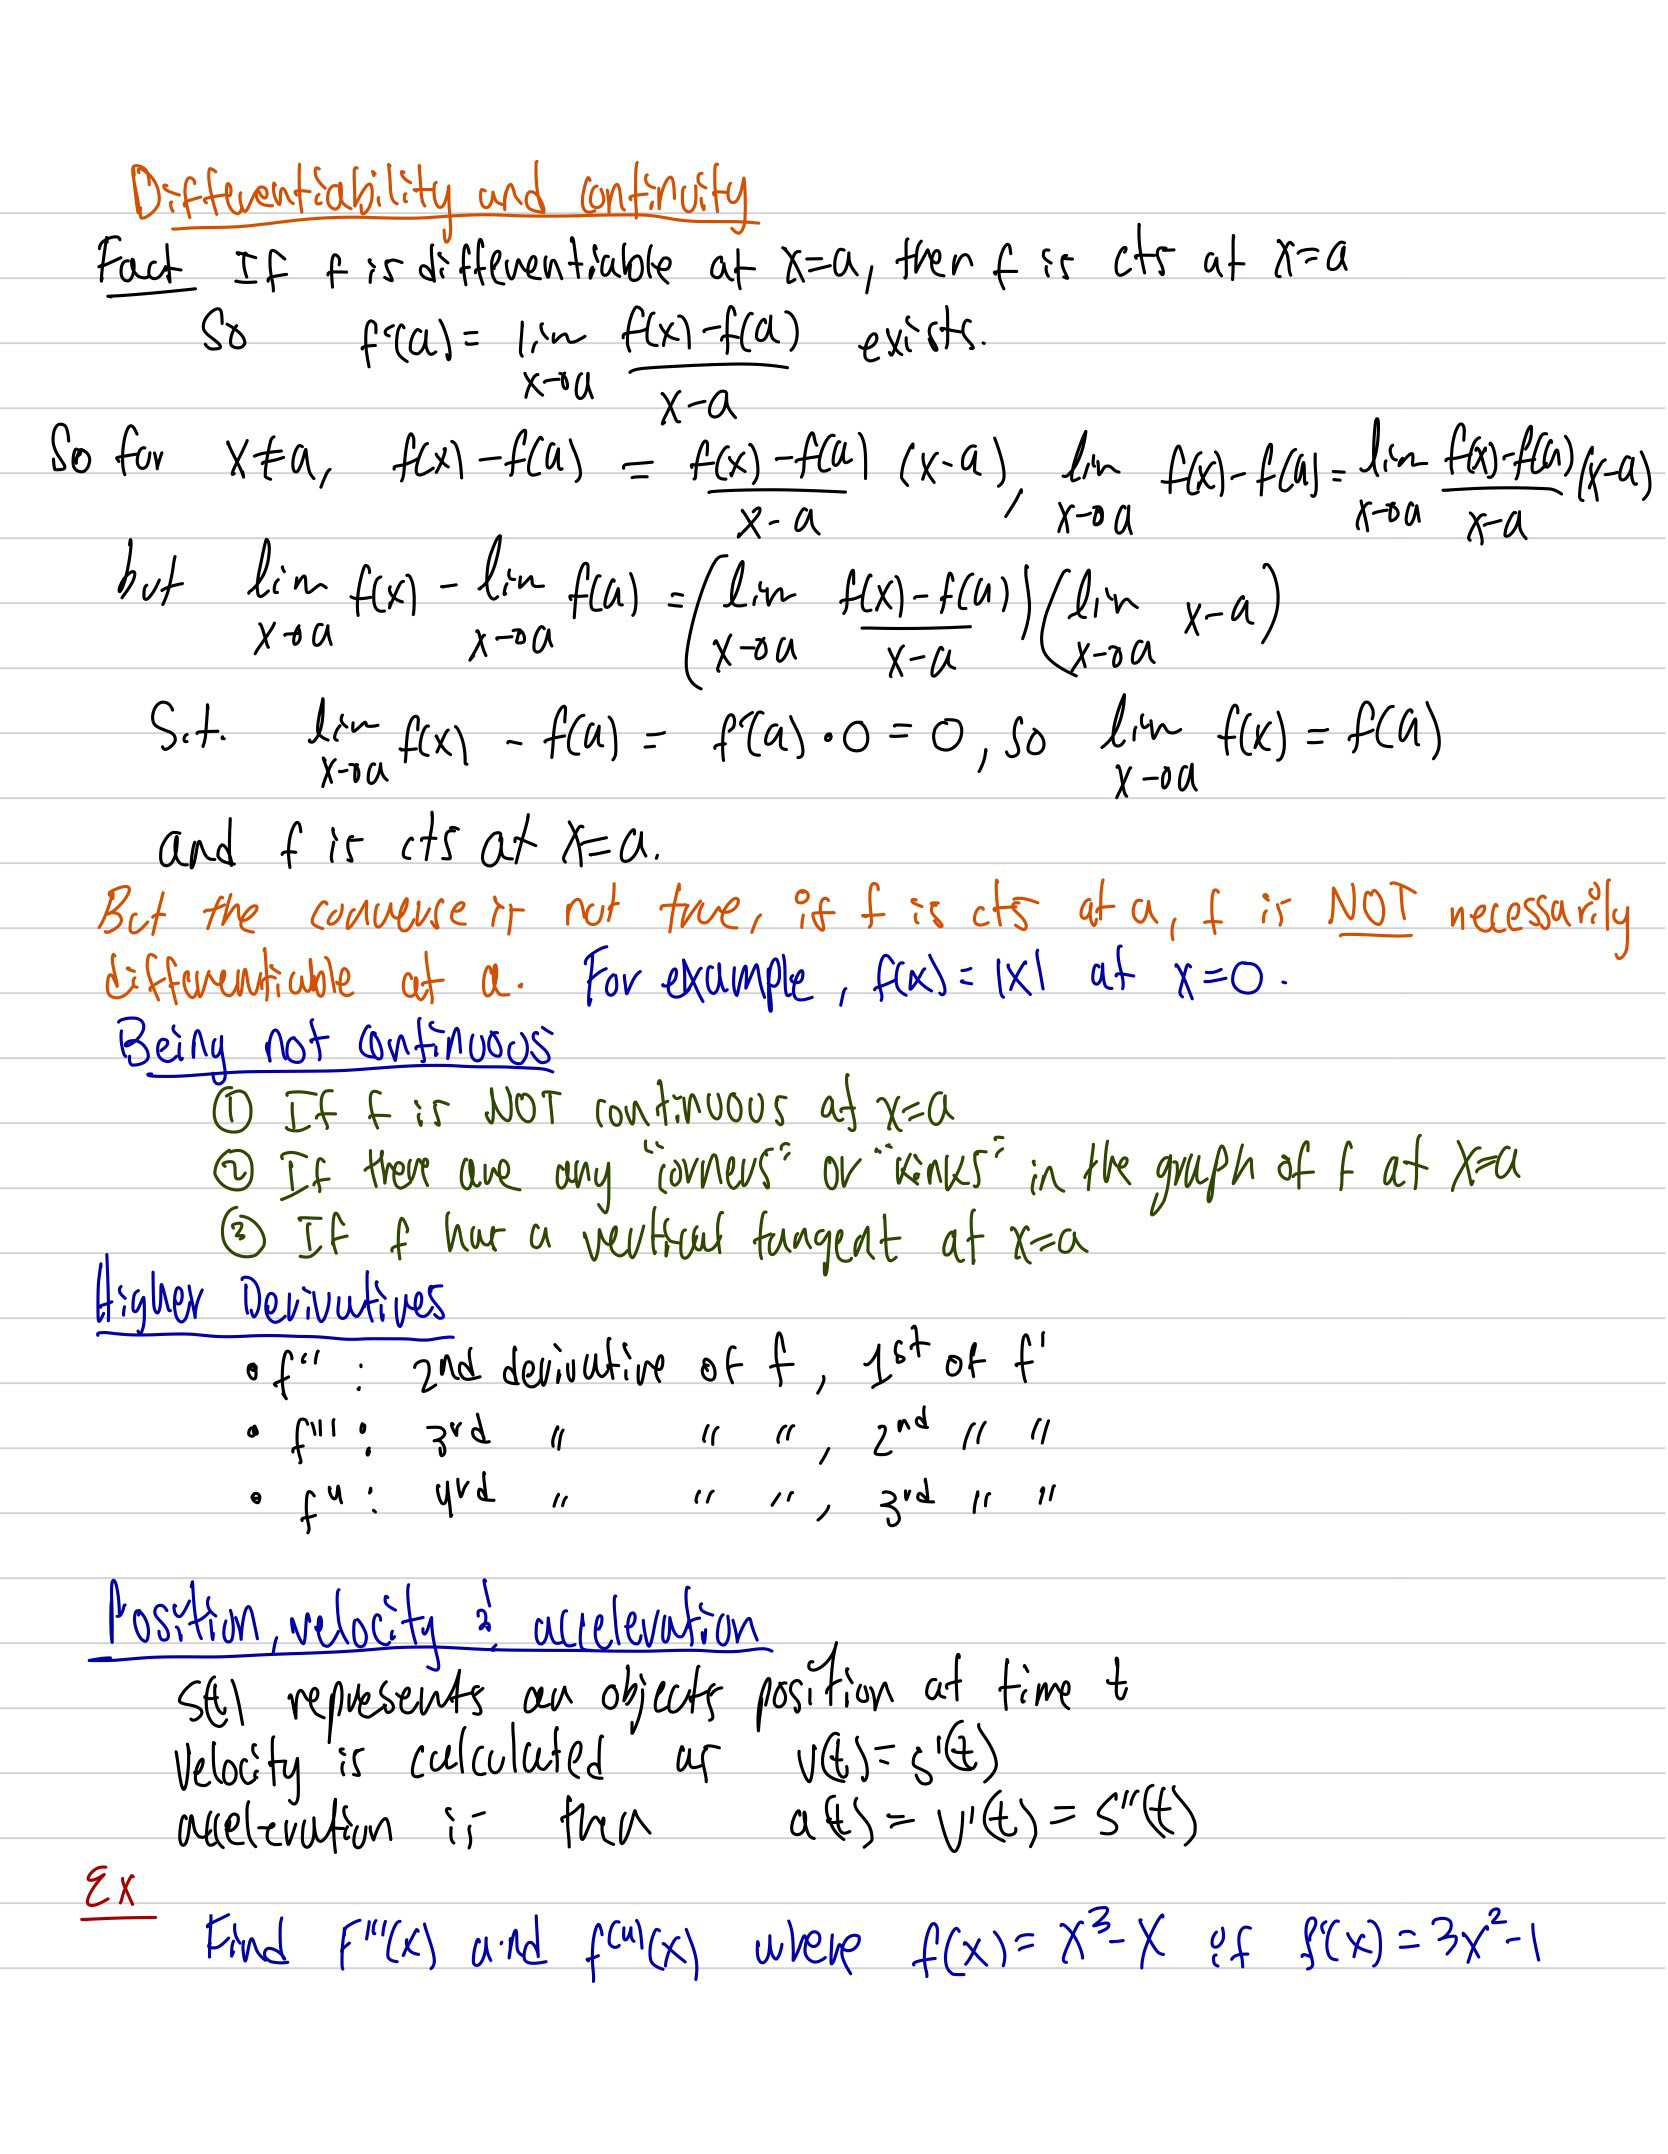 Differentiability and continuity
Fact If f is differentiable at x=a, then f is cts at x=a
So f'(a) = lim_{x→a} (f(x)-f(a))/(x-a) exists.
So for x≠a, f(x)-f(a) = (f(x)-f(a))/(x-a) (x-a), lim_{x→a} f(x)-f(a) = lim_{x→a} (f(x)-f(a))/(x-a) (x-a)
but lim_{x→a} f(x) - lim_{x→a} f(a) = (lim_{x→a} (f(x)-f(a))/(x-a)) (lim_{x→a} x-a)
S.t. lim_{x→a} f(x) - f(a) = f'(a)·0 = 0, so lim_{x→a} f(x) = f(a)
and f is cts at x=a.
But the converse is not true, if f is cts at a, f is NOT necessarily
differentiable at a. For example, f(x) = |x| at x=0.
Being not continuous
① If f is NOT continuous at x=a
② If there are any "corners" or "kinks" in the graph of f at x=a
③ If f has a vertical tangent at x=a
Higher Derivatives
• f'' : 2nd derivative of f, 1st of f'
• f''' : 3rd " " ", 2nd " "
• f⁴ : 4rd " " ", 3rd " "
Position, velocity & acceleration
s(t) represents an objects position at time t
velocity is calculated as v(t) = s'(t)
acceleration is then a(t) = v'(t) = s''(t)
Ex
Find F'''(x) and f⁽⁴⁾(x) where f(x) = x³-x if f'(x) = 3x²-1